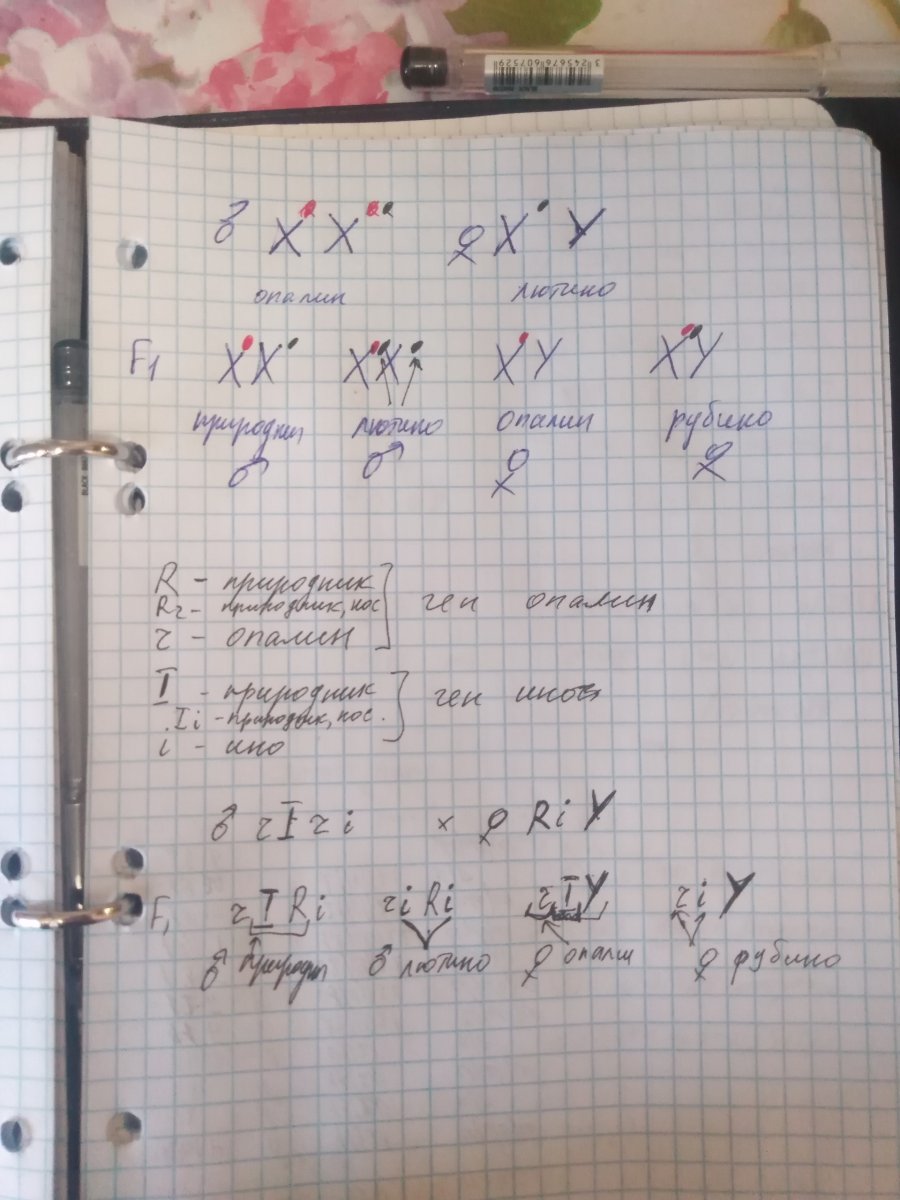 3245676607529
♂ X X ♀ X Y
опалин лютино
F1 XX XX XY XY
природник лютино опалин рубино
♂ ♂ ♀ ♀
R - природник
Rr - природник, нос
r - опалин
ген опалин
I - природник
Ii - природник, нос.
i - ино
ген ино
♂ rI ri × ♀ Ri Y
F1 rI Ri ri Ri rI Y ri Y
♂ природн ♂ лютино ♀ опалин ♀ рубино